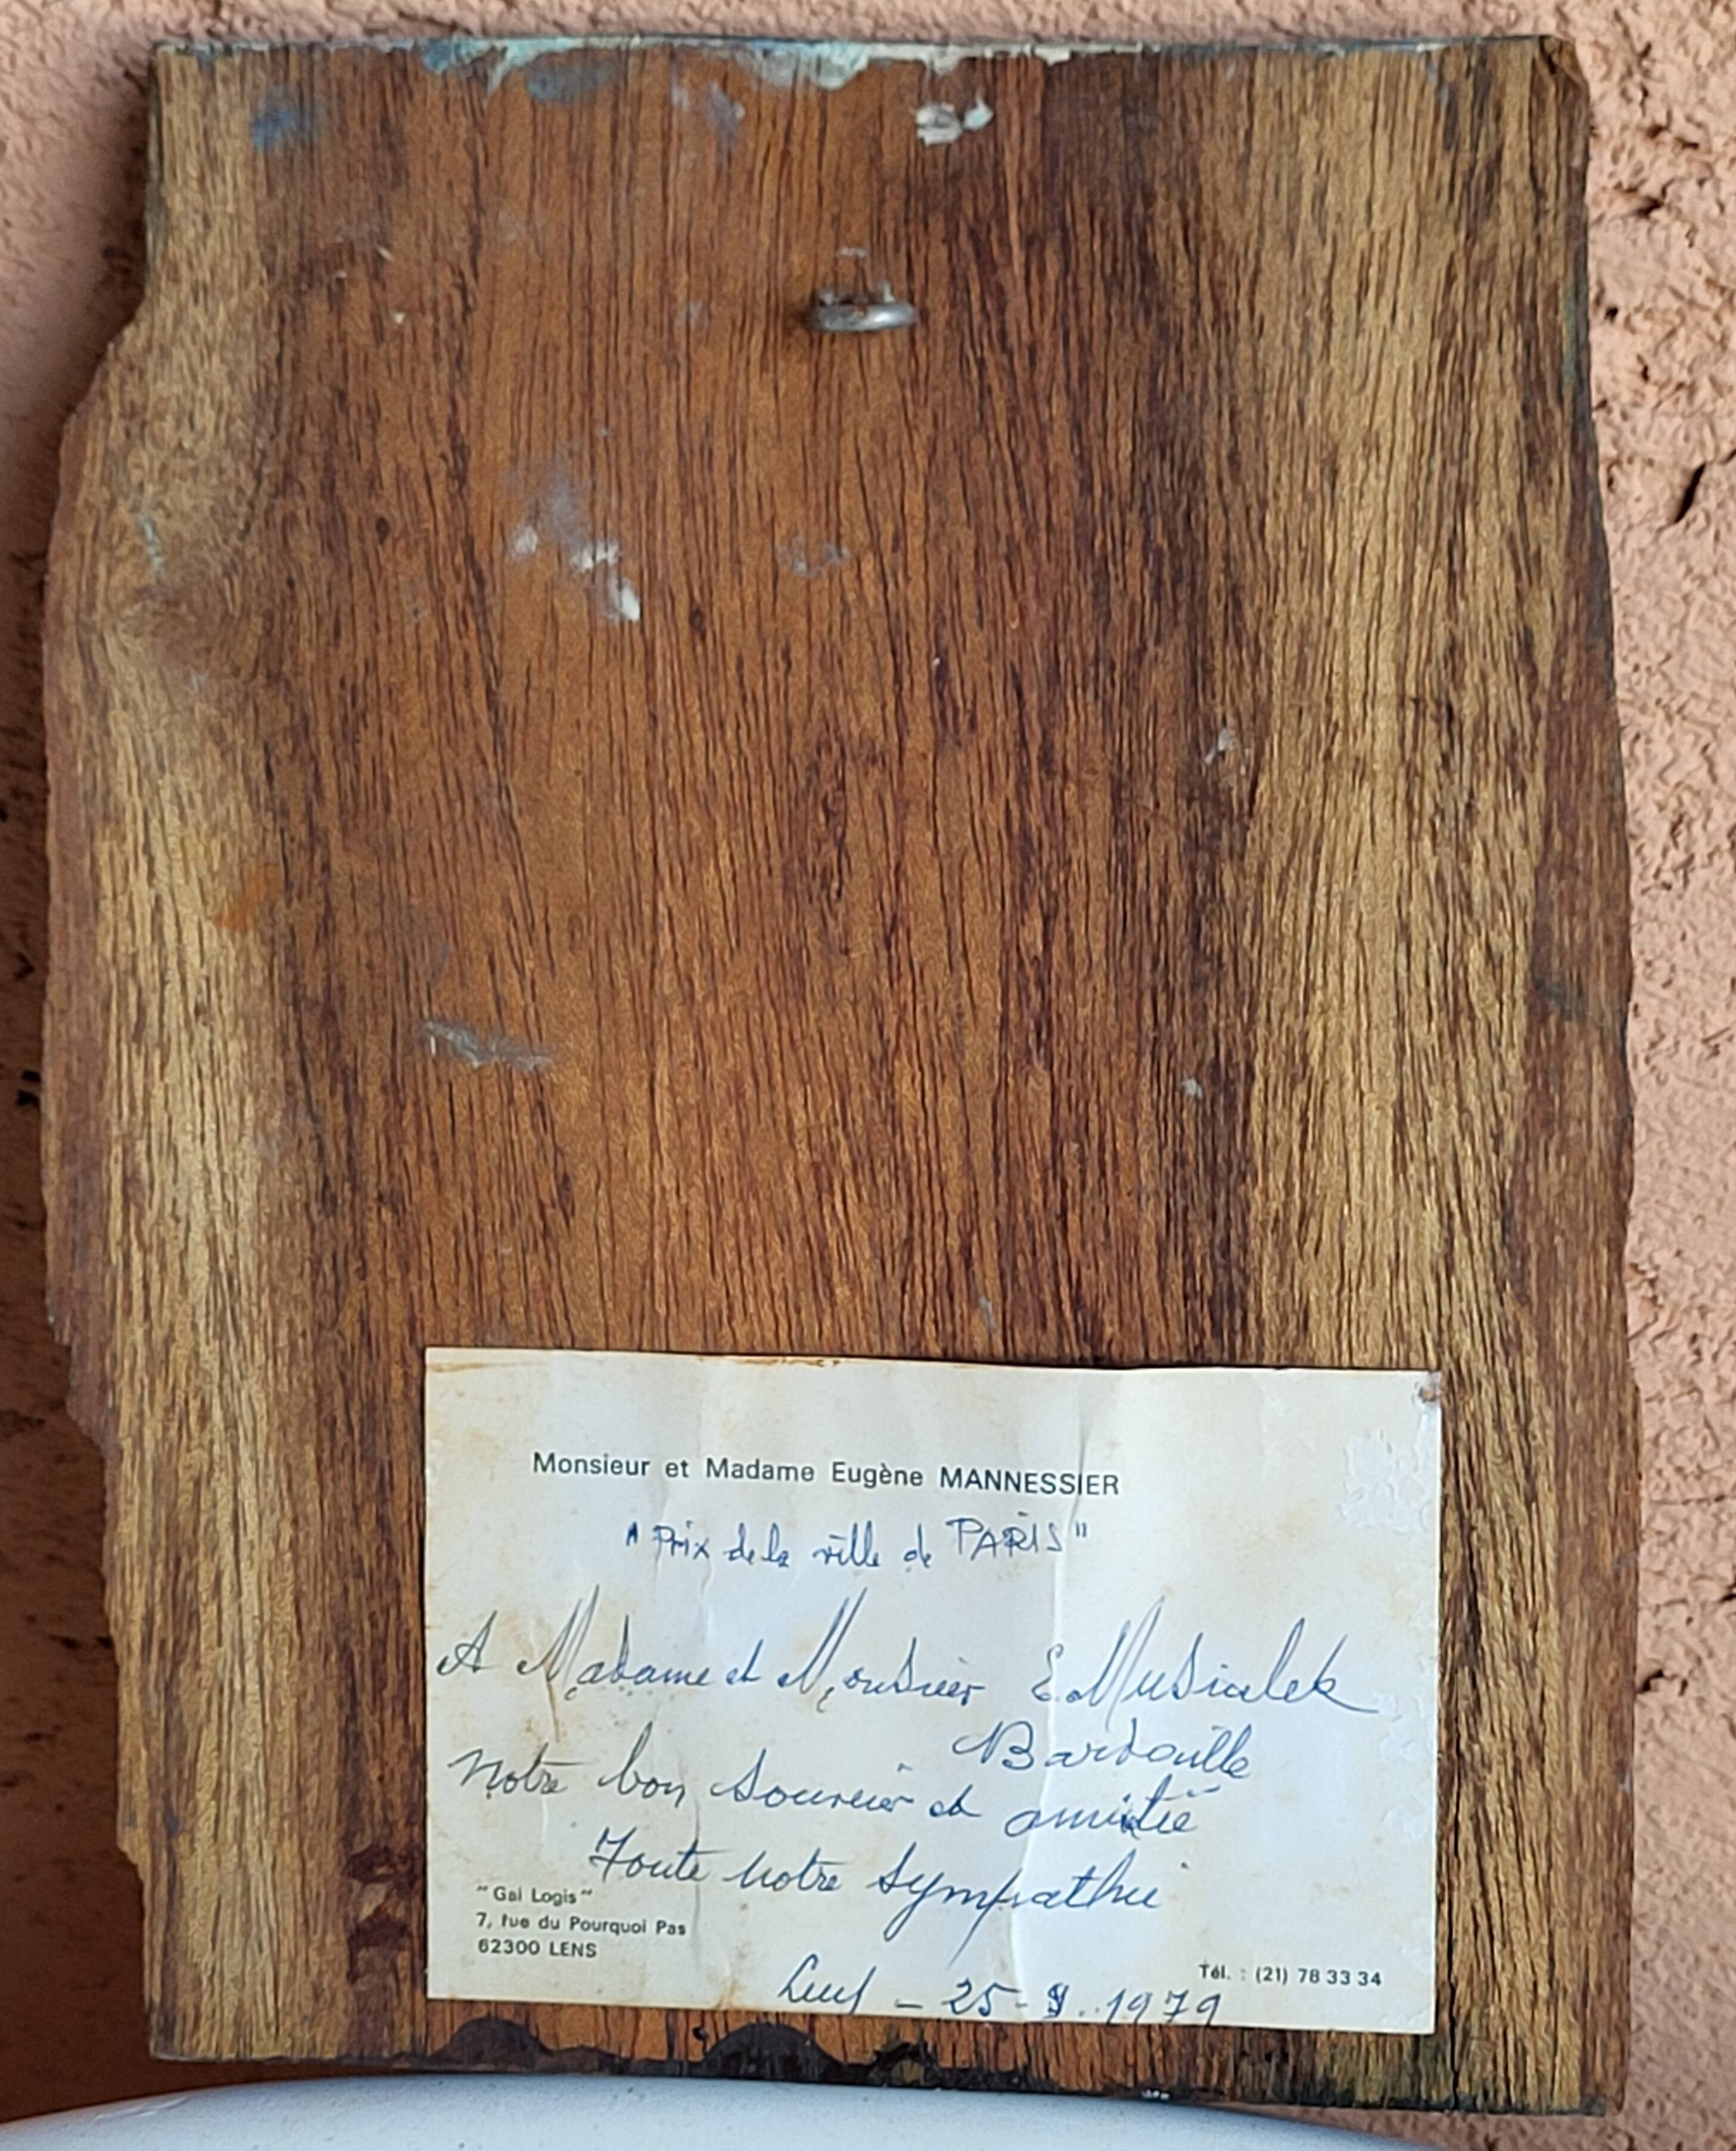 Monsieur et Madame Eugène MANNESSIER
"Prix de la ville de PARIS"
A Madame et Monsieur E. Musialek
Bardouille
Notre bon souvenir et amitié
Toute notre sympathie
"Gai Logis"
7, rue du Pourquoi Pas
62300 LENS
Tél. : (21) 78 33 34
25 - 1979